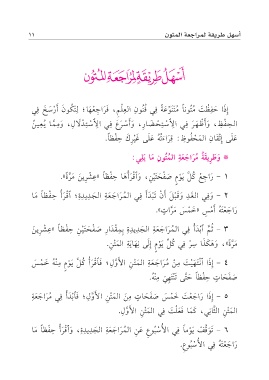 أسهل طريقة لمراجعة المتون ١١
أَسْهَلُ طَرِيقَةٍ لِمُرَاجَعَةِ المُتُونِ
إِذَا حَفِظْتَ مُتُوناً مُتَنَوِّعَةً فِي فُنُونِ العِلْمِ، فَرَاجِعْهَا؛ لِتَكُونَ أَرْسَخَ فِي
الحِفْظِ، وَأَظْهَرَ فِي الِاسْتِحْضَارِ، وَأَسْرَعَ فِي الِاسْتِدْلَالِ، وَمِمَّا يُعِينُ
عَلَى إِتْقَانِ المَحْفُوظِ: قِرَاءَتُهُ عَلَى غَيْرِكَ حِفْظاً.
* وَطَرِيقَةُ مُرَاجَعَةِ المُتُونِ مَا يَلِي:
١ - رَاجِعْ كُلَّ يَوْمٍ صَفْحَتَيْنِ، وَاقْرَأْهَا حِفْظاً «عِشْرِينَ مَرَّةً».
٢ - وَفِي الغَدِ وَقَبْلَ أَنْ تَبْدَأَ فِي المُرَاجَعَةِ الجَدِيدَةِ؛ اقْرَأْ حِفْظاً مَا
رَاجَعْتَهُ أَمْسِ «خَمْسَ مَرَّاتٍ».
٣ - ثُمَّ ابْدَأْ فِي المُرَاجَعَةِ الجَدِيدَةِ بِمِقْدَارِ صَفْحَتَيْنِ حِفْظاً «عِشْرِينَ
مَرَّةً»، وَهَكَذَا سِرْ فِي كُلِّ يَوْمٍ إِلَى نِهَايَةِ المَتْنِ.
٤ - إِذَا انْتَهَيْتَ مِنْ مُرَاجَعَةِ المَتْنِ الأَوَّلِ؛ فَاقْرَأْ كُلَّ يَوْمٍ مِنْهُ خَمْسَ
صَفَحَاتٍ حِفْظاً حَتَّى تَنْتَهِيَ مِنْهُ.
٥ - إِذَا رَاجَعْتَ خَمْسَ صَفَحَاتٍ مِنَ المَتْنِ الأَوَّلِ؛ فَابْدَأْ فِي مُرَاجَعَةِ
المَتْنِ الثَّانِي، كَمَا فَعَلْتَ فِي المَتْنِ الأَوَّلِ.
٦ - تَوَقَّفْ يَوْماً فِي الأُسْبُوعِ عَنِ المُرَاجَعَةِ الجَدِيدَةِ، وَاقْرَأْ حِفْظاً مَا
رَاجَعْتَهُ فِي الأُسْبُوعِ.